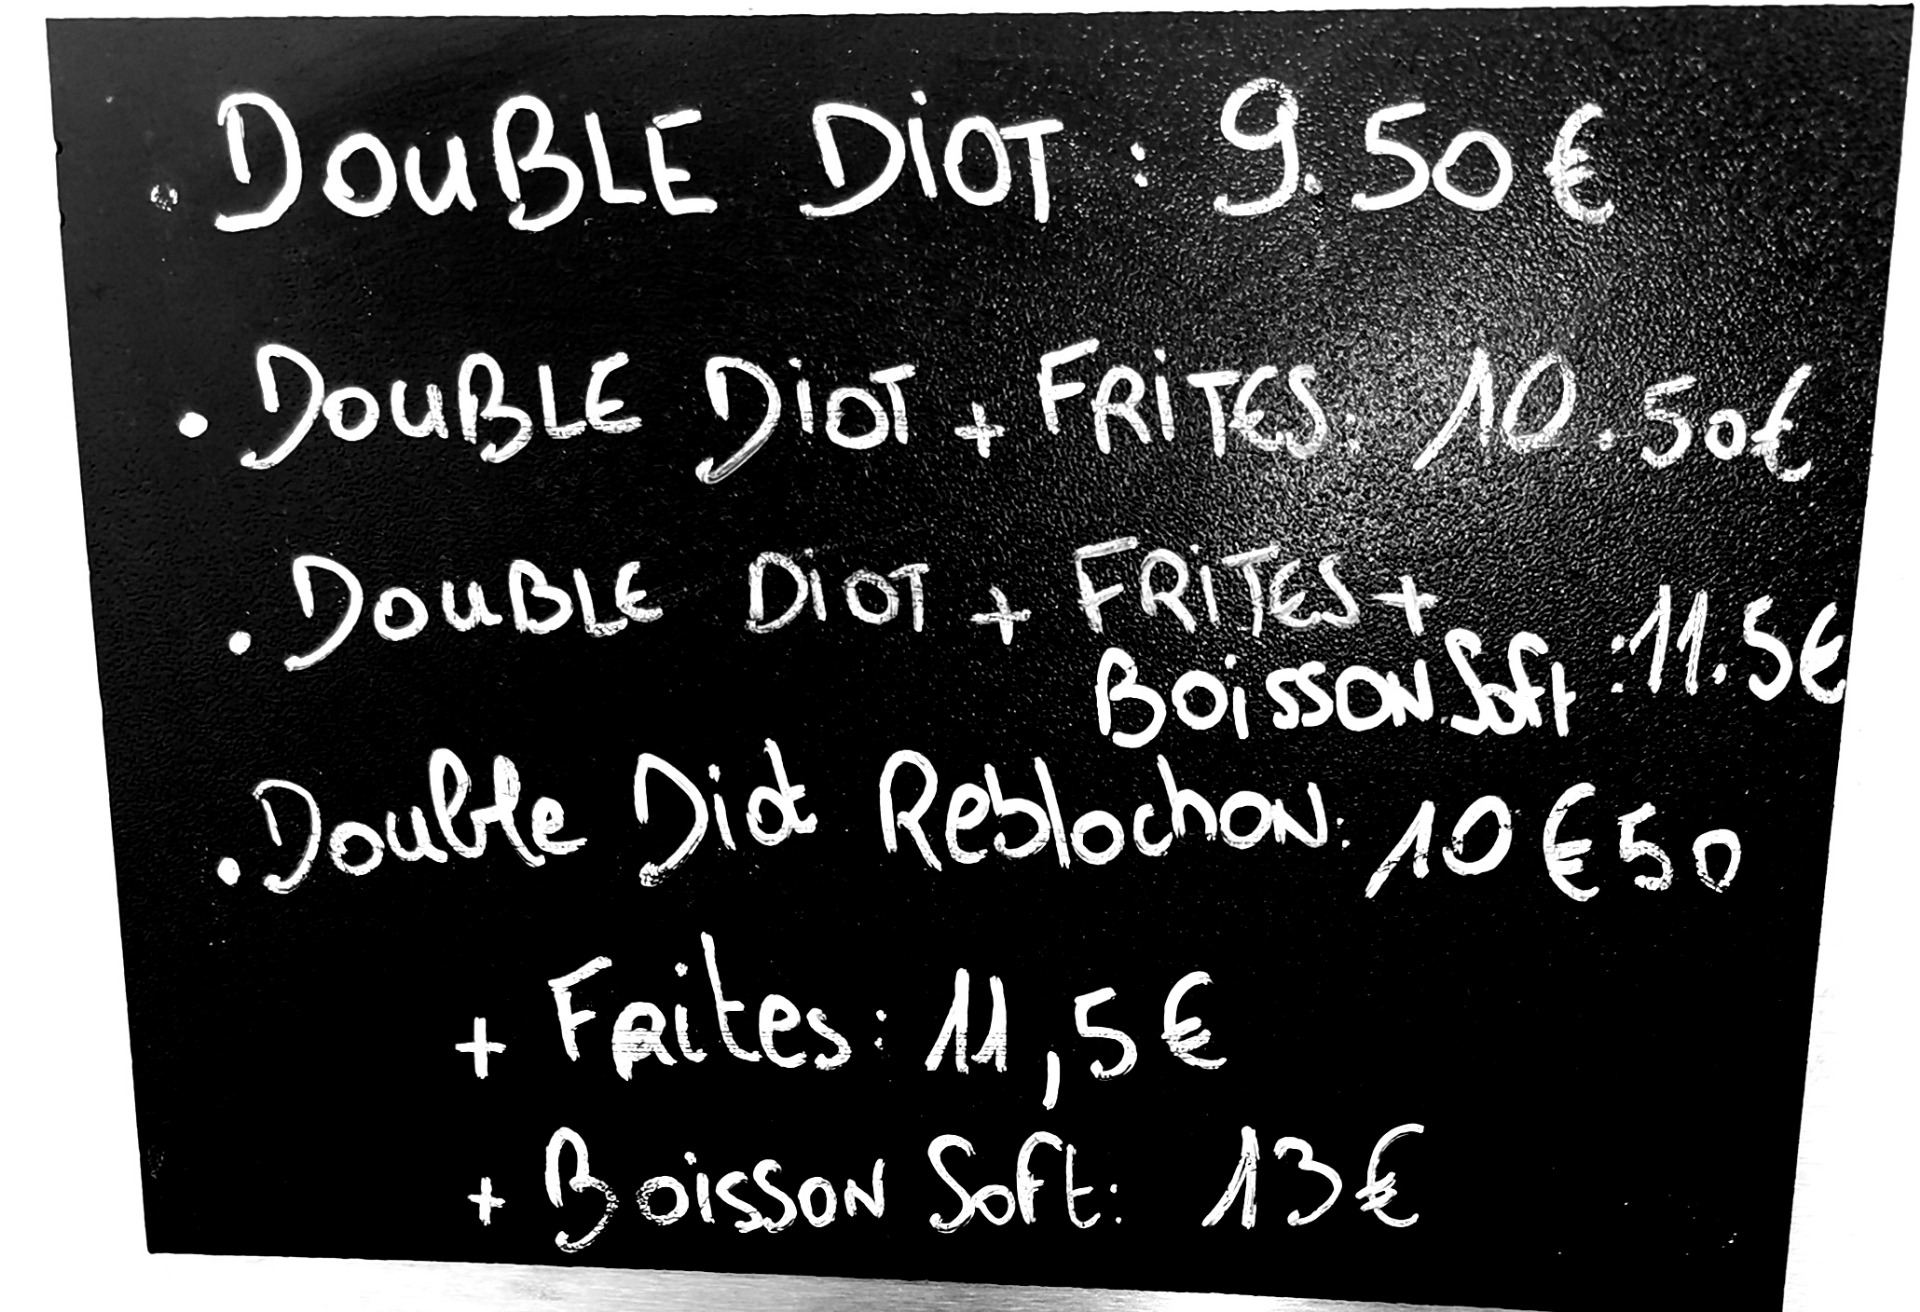 . DOUBLE DiOT : 9.50€
. DOUBLE DiOT + FRiTES: 10.50€
. DOUBLE DiOT + FRiTES +
BOiSSON Soft : 11.5€
. Double Diot Reblochon: 10€50
+ Frites: 11,5€
+ BoissoN Soft: 13€